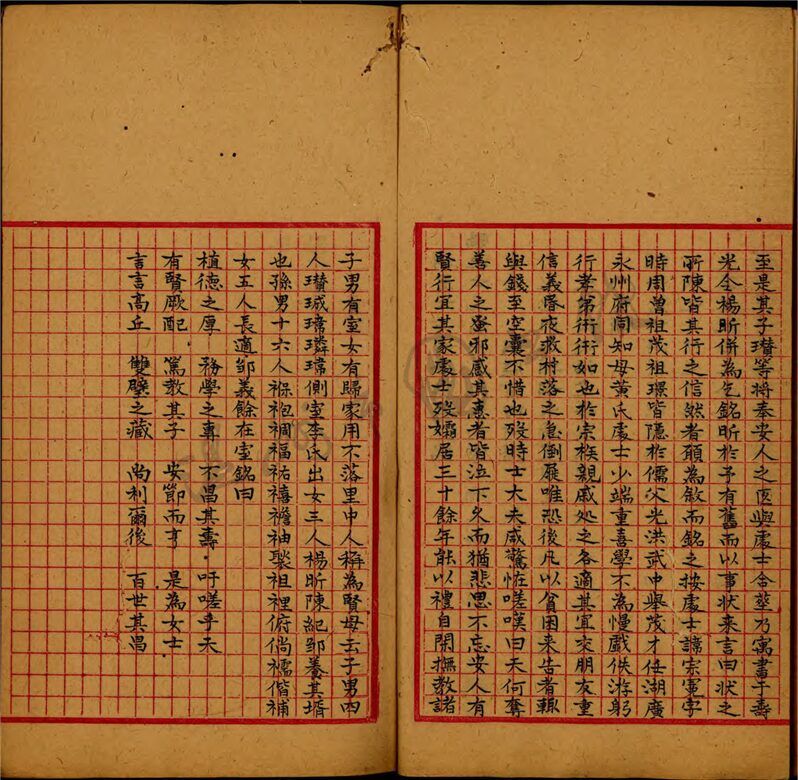 至是其子瓚等將奉安人之匛與處士合塟乃寓書于壽
光令楊昕併為乞銘昕於予有舊而以事狀来言曰狀之
所陳皆其行之信然者願為敘而銘之按處士諱宗憲字
時周曾祖茂祖璟皆隐於儒父光洪武中舉茂才任湖廣
永州府同知母黄氏處士少端重喜學不為慢戲佚游躬
行孝弟術術如也於宗族親戚処之各適其宜交朋友重
信義昏夜救村落之急倒屣唯恐後凡以貧困来告者輒
與錢至空囊不惜也歿時士大夫咸驚恠嗟嘆曰天何奪
善人之蚤邪感其惠者皆泣下久而猶悲思不忘安人有
賢行宜其家處士歿孀居三十餘年能以禮自閑撫教諸
子男有室女有歸家用不落里中人稱為賢母云子男四
人瓚珹瑋璘瑋側室李氏出女三人楊昕陳紀邹養其壻
也孫男十六人褓袍裯福祐禧襜袖褧祖裡俯倘襦偕補
女五人長適邹義餘在室銘曰
植德之厚 務學之專 不昌其壽 吁嗟乎天
有賢厥配 篤教其子 安節而亨 是為女士
言言高丘 雙壁之藏 尚利爾後 百世其昌